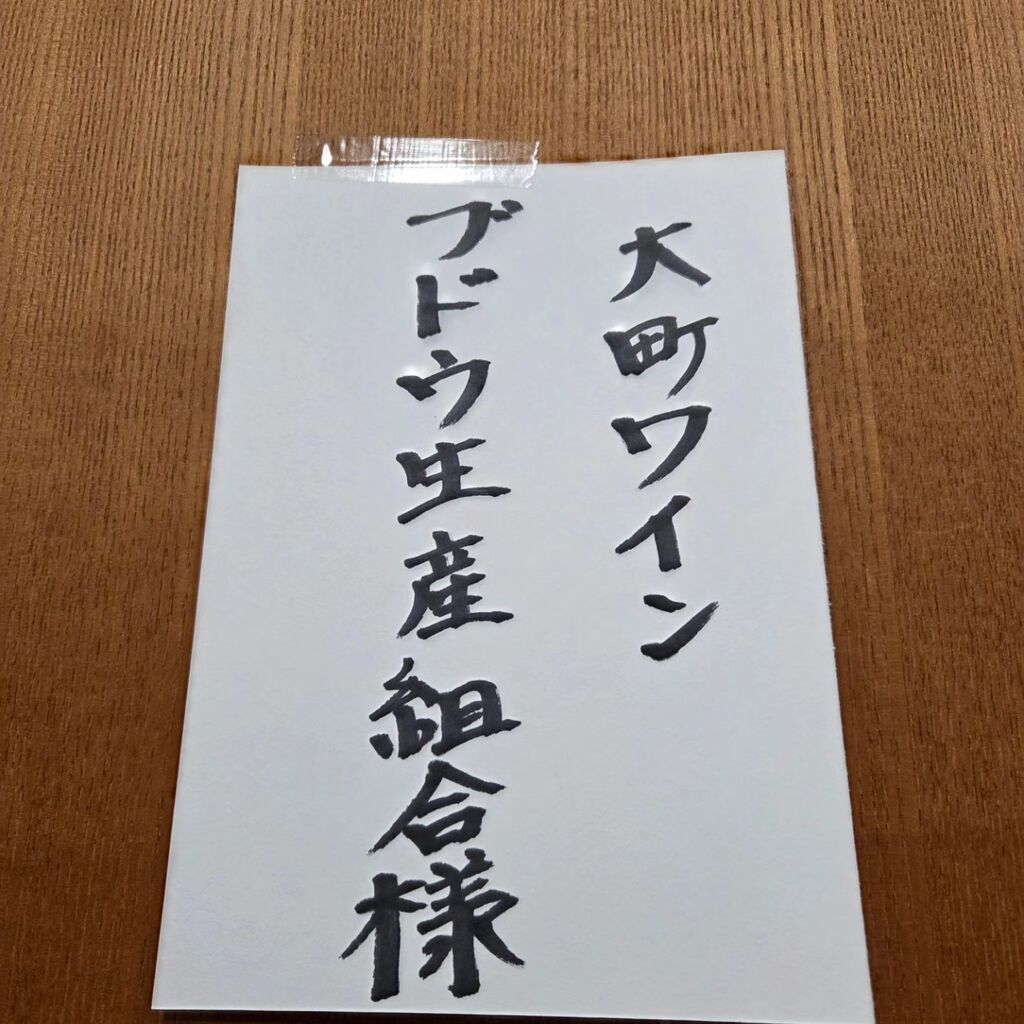 大町ワイン
ブドウ生産組合様